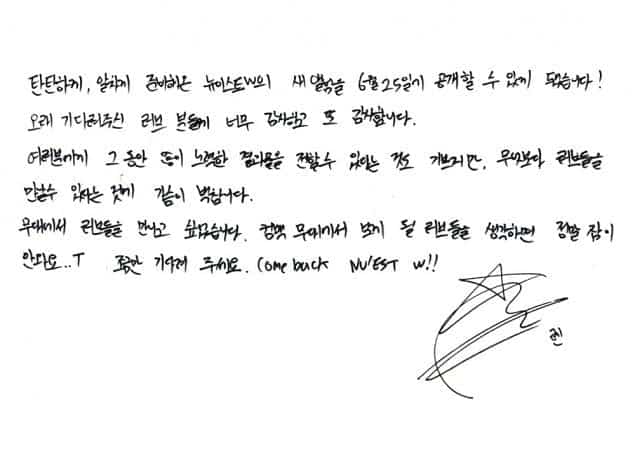 탄탄하게, 알차게 준비하온 뉴이스트W의 새 앨범을 6월 25일에 공개할 수 있게 되었습니다!
오래 기다려주신 러브 분들께 너무 감사하고 또 감사합니다.
여러분에게 그 동안 많이 노력한 결과물을 전할 수 있다는 것도 기쁘지만, 무엇보다 러브들을
만날 수 있다는 것에 가슴이 벅찹니다.
무대에서 러브들을 만나고 싶었습니다. 컴백 무대에서 보게 될 러브들을 생각하면 정말 잠이
안 와요..T 조금만 기다려 주세요. Come back NU'EST W!!
렌